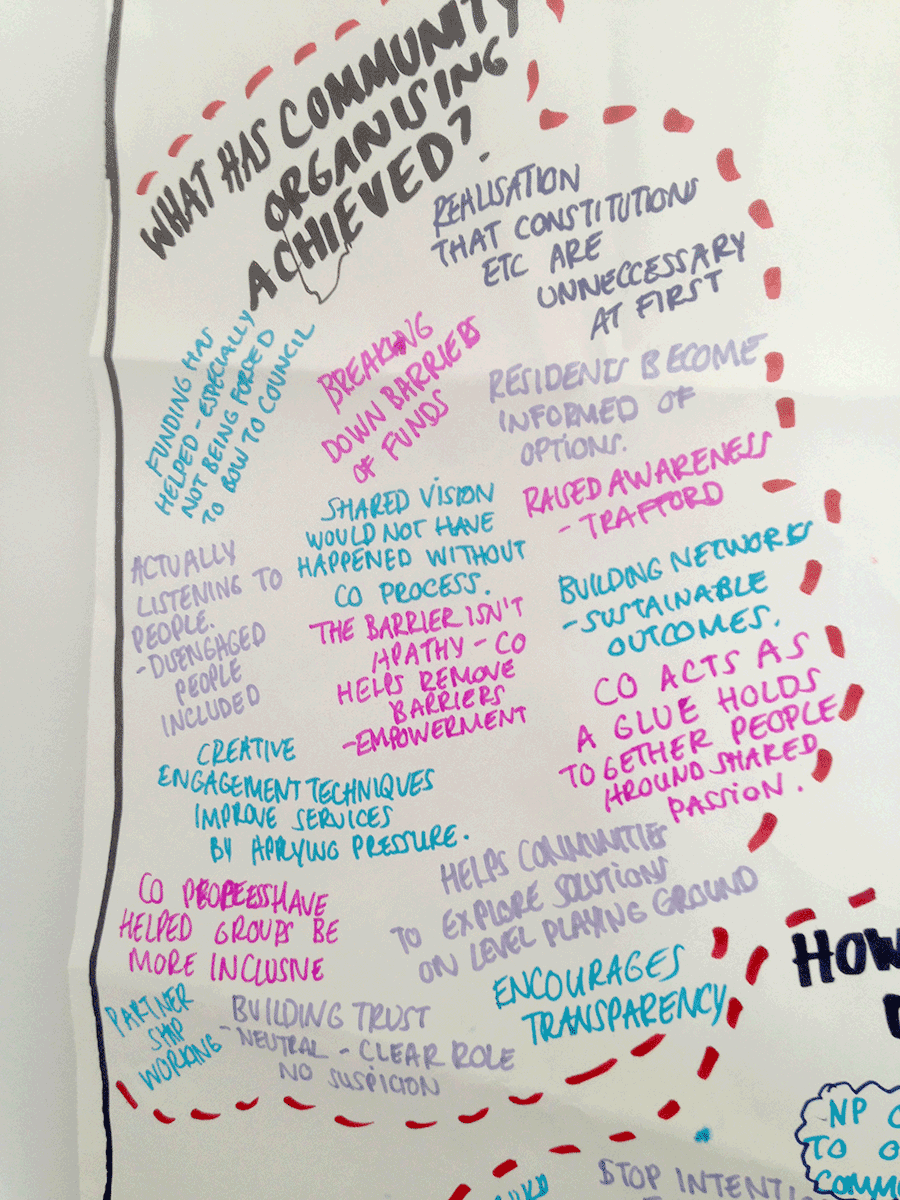 WHAT HAS COMMUNITY
ORGANISING
ACHIEVED?
REALISATION
THAT CONSTITUTIONS
ETC ARE
UNNECCESSARY
AT FIRST
FUNDING HAS
HELPED - ESPECIALLY
NOT BEING FORCED
TO BOW TO COUNCIL
BREAKING
DOWN BARRIERS
OF FUNDS
RESIDENTS BECOME
INFORMED OF
OPTIONS.
RAISED AWARENESS
- TRAFFORD
SHARED VISION
WOULD NOT HAVE
HAPPENED WITHOUT
CO PROCESS.
ACTUALLY
LISTENING TO
PEOPLE.
- DISENGAGED
PEOPLE
INCLUDED
BUILDING NETWORKS
- SUSTAINABLE
OUTCOMES.
THE BARRIER ISN'T
APATHY - CO
HELPS REMOVE
BARRIERS
- EMPOWERMENT
CO ACTS AS
A GLUE HOLDS
TOGETHER PEOPLE
AROUND SHARED
PASSION.
CREATIVE
ENGAGEMENT TECHNIQUES
IMPROVE SERVICES
BY APPLYING PRESSURE.
HELPS COMMUNITIES
TO EXPLORE SOLUTIONS
ON LEVEL PLAYING GROUND
CO HAVE
HELPED GROUPS BE
MORE INCLUSIVE
ENCOURAGES
TRANSPARENCY
PARTNER
SHIP
WORKING
BUILDING TRUST
- NEUTRAL - CLEAR ROLE
NO SUSPICION
HOW
NP
TO
COMM
STOP INTENTI